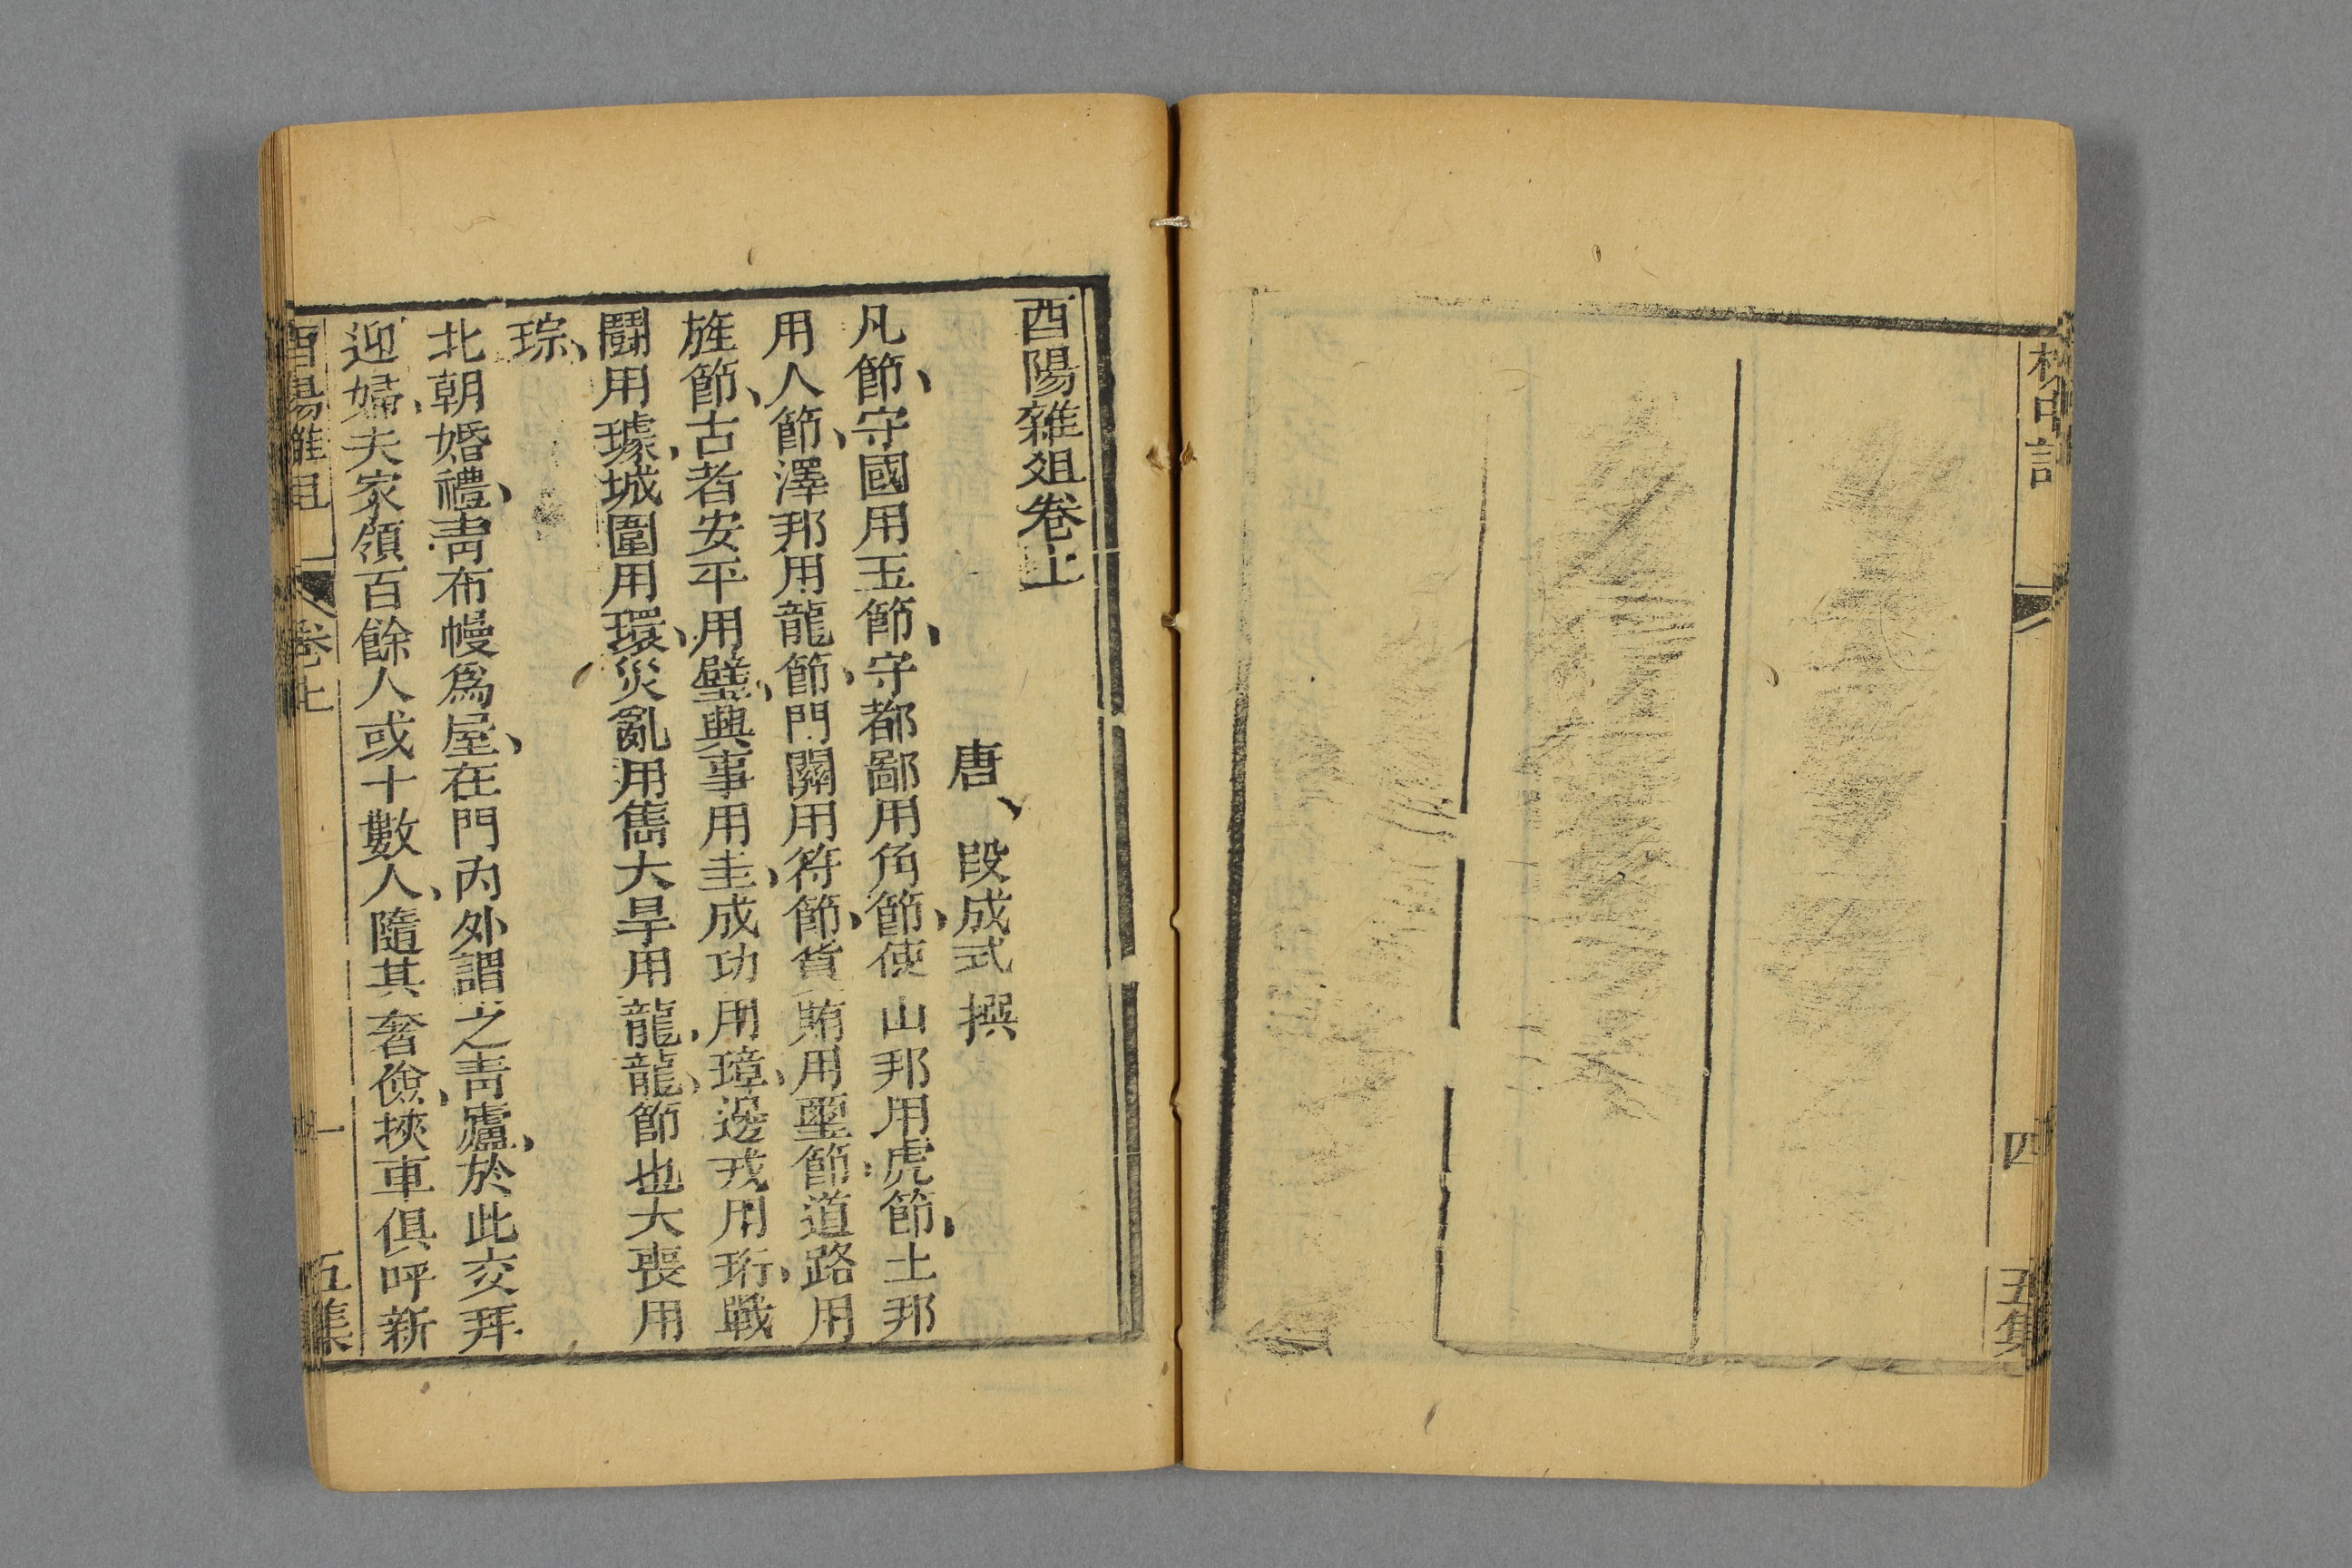 四
五集
酉陽雜俎卷上
唐、段成式撰
凡節、守國用玉節、守都鄙用角節、使山邦用虎節、土邦
用人節、澤邦用龍節、門關用符節、貨賄用璽節、道路用
旌節、古者安平用璧、興事用圭、成功用璋、邊戎用珩、戰
鬪用璩、城圍用環、災亂用雋大旱用龍、龍、節也大喪用
琮、
北朝婚禮、靑布幔爲屋、在門內外謂之靑廬、於此交拜
迎婦、夫家領百餘人或十數人、隨其奢儉、挾車俱呼新
酉陽雜俎
卷上
一
五集